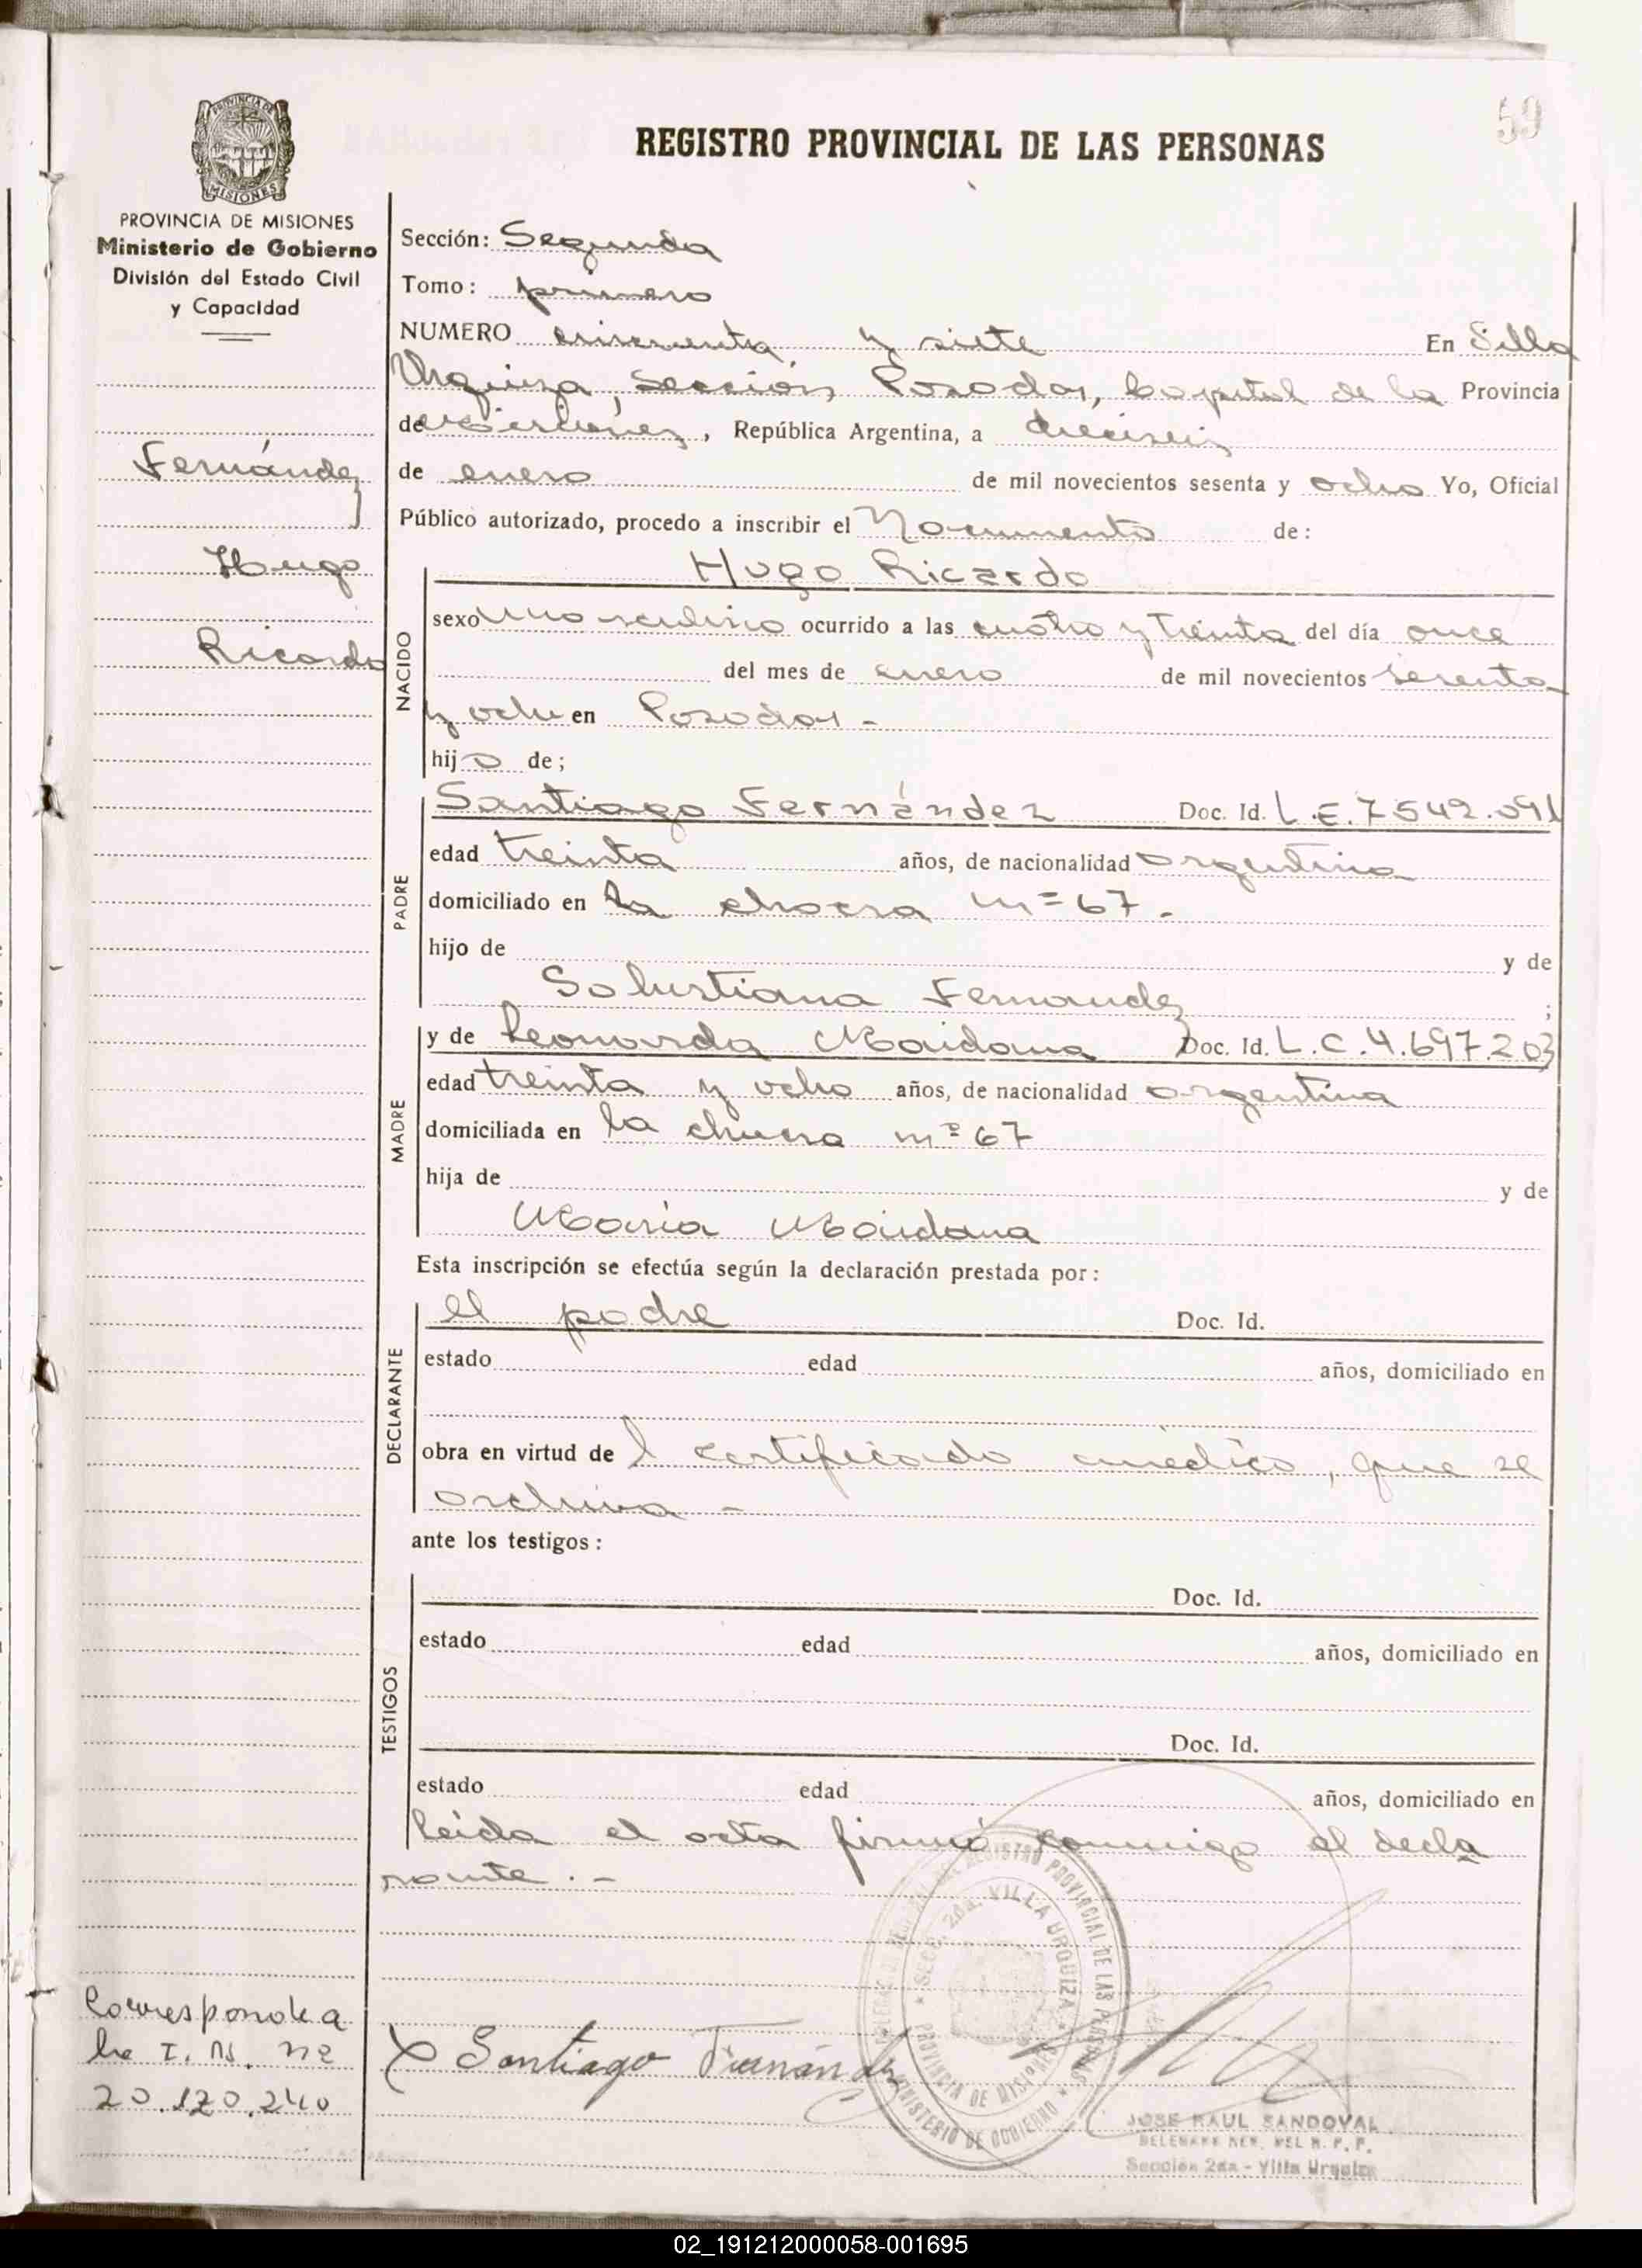 59
REGISTRO PROVINCIAL DE LAS PERSONAS
PROVINCIA DE MISIONES
Ministerio de Gobierno
División del Estado Civil
y Capacidad
Fernández
Hugo
Ricardo
Sección: Segunda
Tomo: primero
NUMERO cincuenta y siete En Villa
Urquiza Sección, Posadas, Capital de la Provincia
de Misiones, República Argentina, a dieciseis
de enero de mil novecientos sesenta y ocho Yo, Oficial
Público autorizado, procedo a inscribir el Nacimiento de:
Hugo Ricardo
NACIDO
sexo masculino ocurrido a las cuatro y treinta del día once
del mes de enero de mil novecientos sesenta
y ocho en Posadas -
hijo de;
Santiago Fernández Doc. Id. L.E. 7542.091
PADRE
edad treinta años, de nacionalidad argentina
domiciliado en la chacra nº 67.
hijo de y de
Salustiana Fernandez ;
y de Leonarda Maidana Doc. Id. L.C. 4.697.203
MADRE
edad treinta y ocho años, de nacionalidad argentina
domiciliada en la chacra nº 67
hija de y de
María Maidana
Esta inscripción se efectúa según la declaración prestada por:
el padre Doc. Id.
DECLARANTE
estado edad años, domiciliado en
obra en virtud de l certificado médico, que se
archiva -
ante los testigos:
Doc. Id.
TESTIGOS
estado edad años, domiciliado en
Doc. Id.
estado edad años, domiciliado en
Leida el acta firmó conmigo el decla
rante. -
Corresponde a
la I. nº
20.120.240
X Santiago Fernández
REGISTRO PROVINCIAL DE LAS PERSONAS
SECC. 2da. VILLA URQUIZA
PROVINCIA DE MISIONES
MINISTERIO DE GOBIERNO
JOSE RAUL SANDOVAL
DEL R. P. P.
Sección 2da - Villa Urquiza
02_191212000058-001695